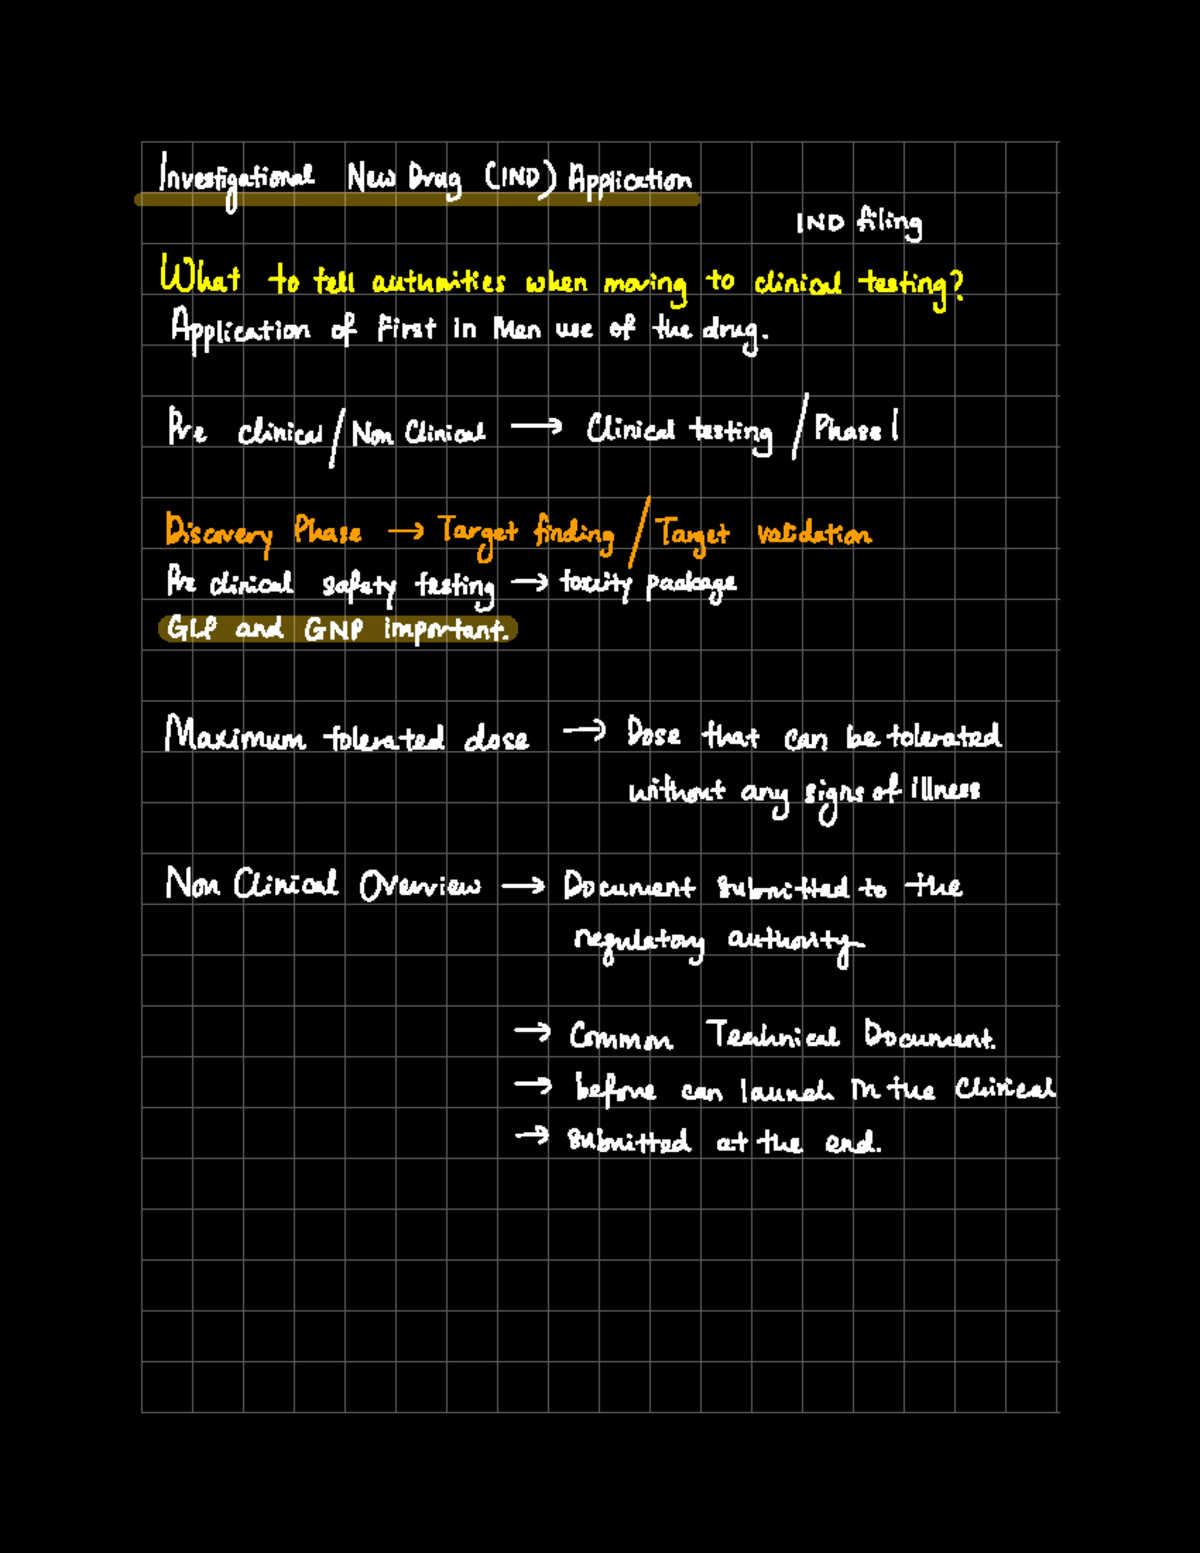 Investigational New Drug (IND) Application
IND filing
What to tell authorities when moving to clinical testing?
Application of First in Men use of the drug.
Pre clinical / Non Clinical → Clinical testing / Phase 1
Discovery Phase → Target finding / Target validation
Pre clinical safety testing → toxcity package
GLP and GNP important.
Maximum tolerated dose → Dose that can be tolerated
without any signs of illness
Non Clinical Overview → Document submitted to the
regulatory authority
→ Common Technical Document.
→ before can launch in the Clinical
→ submitted at the end.